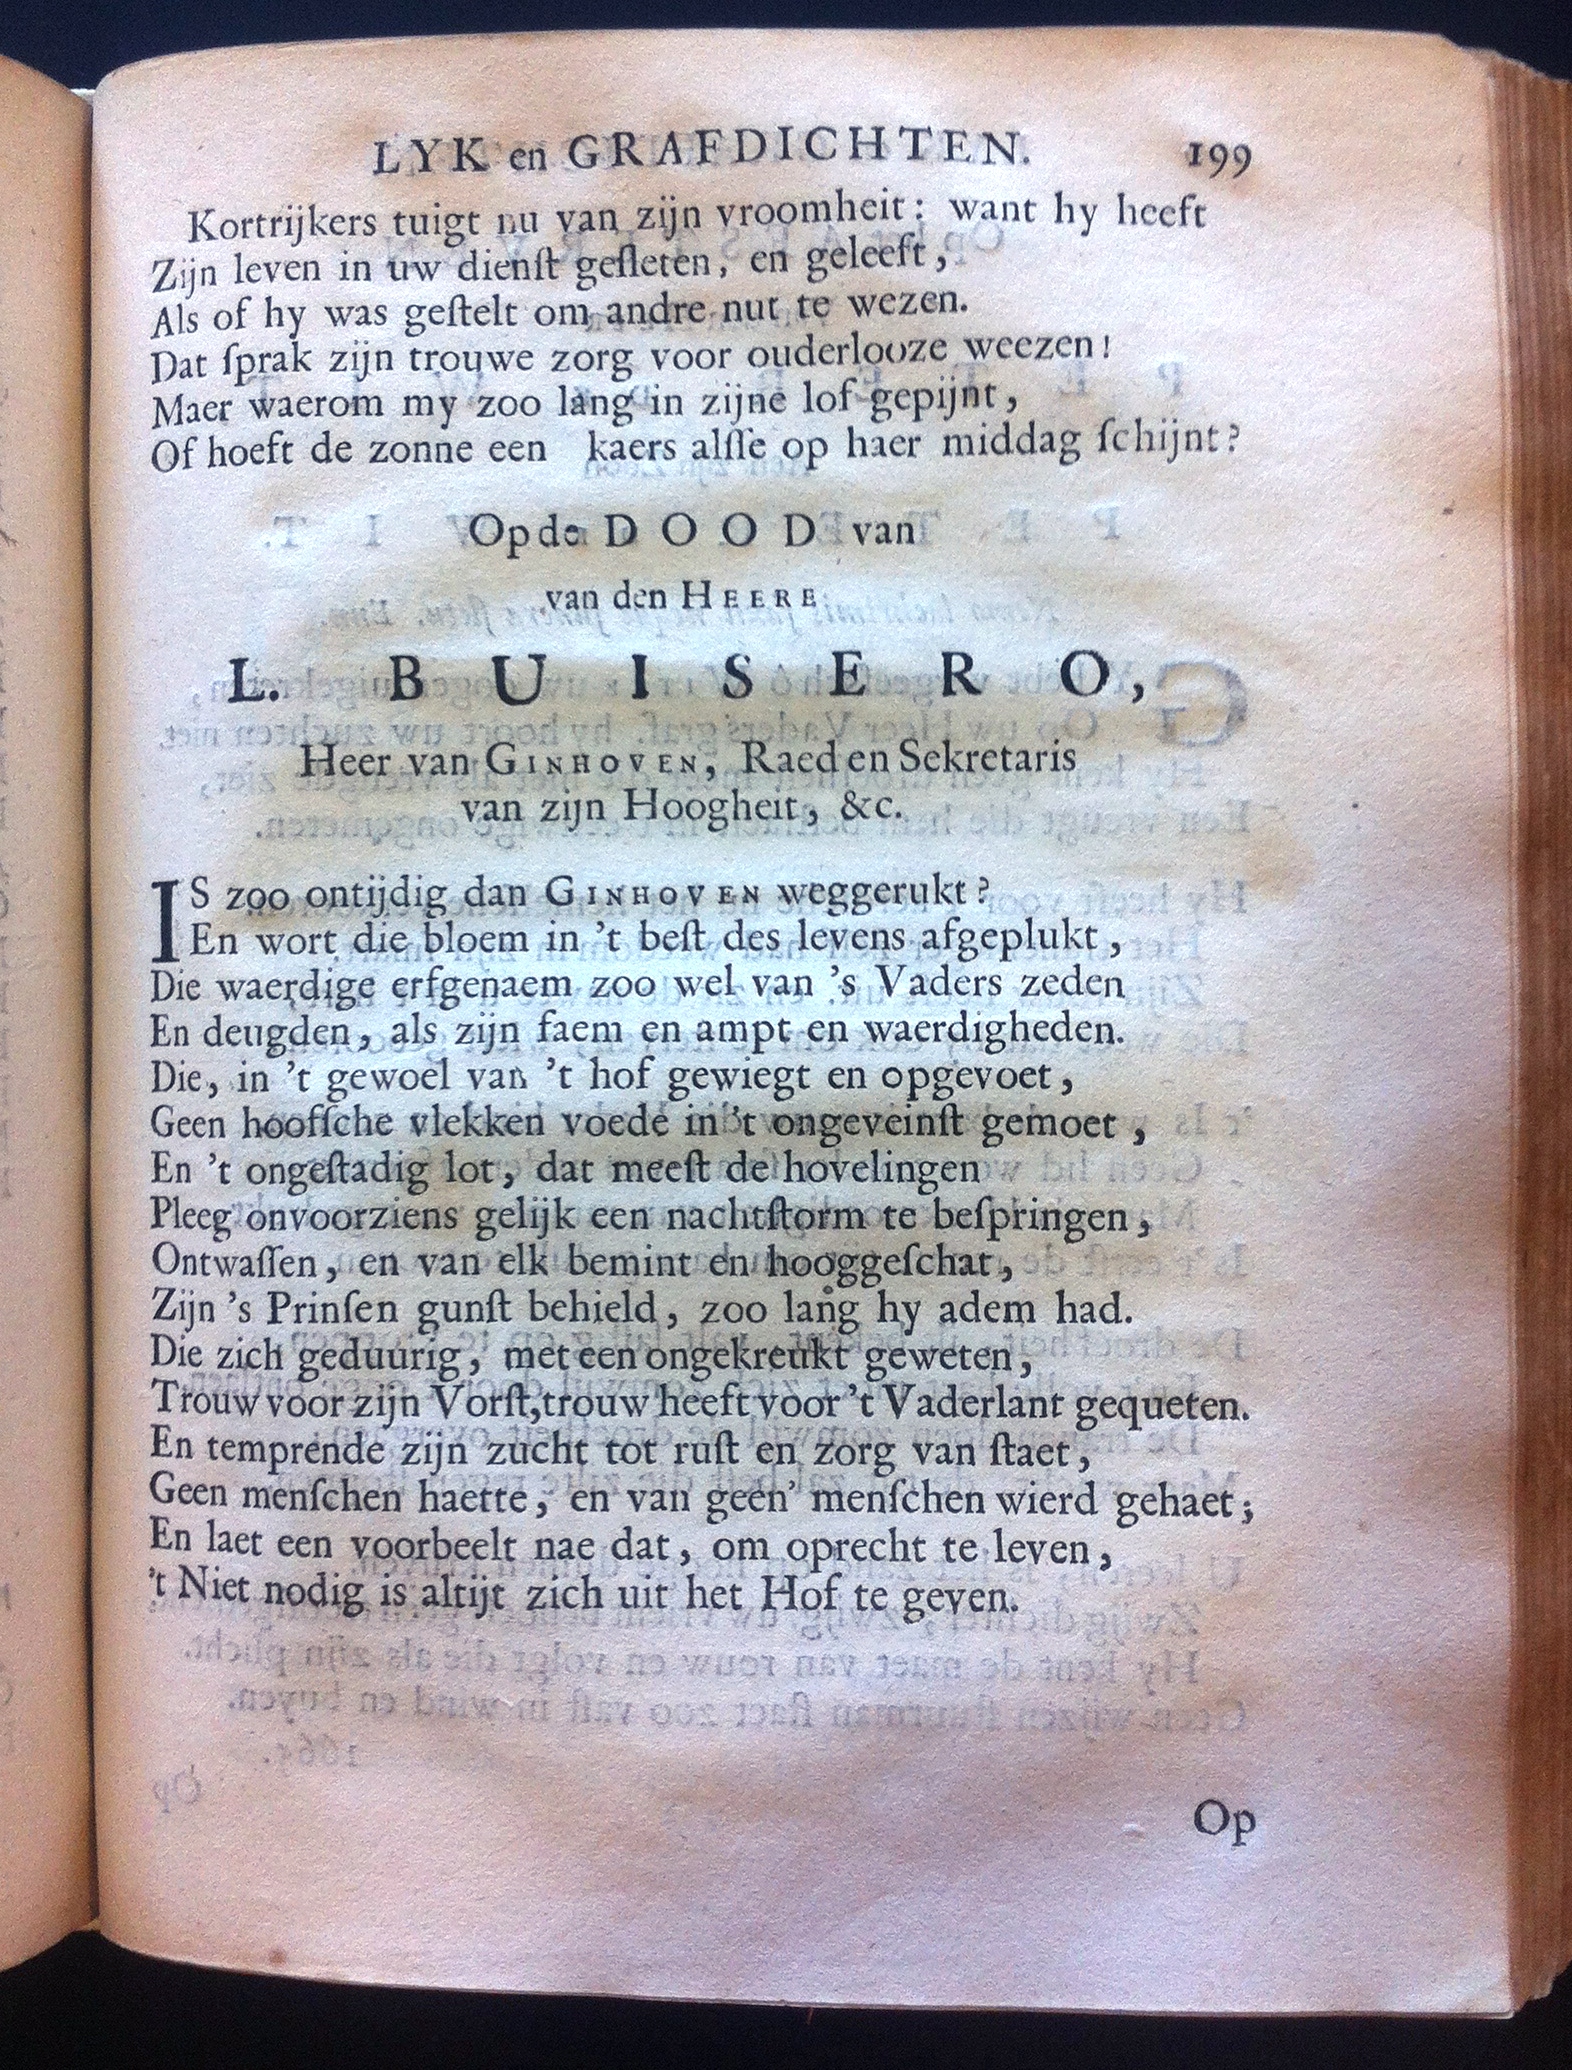 LYK en GRAFDICHTEN. 199
Kortrijkers tuigt nu van zijn vroomheit: want hy heeft
Zijn leven in uw dienſt geſleten, en geleeft,
Als of hy was geſtelt om andre nut te wezen.
Dat ſprak zijn trouwe zorg voor ouderlooze weezen!
Maer waerom my zoo lang in zijne lof gepijnt,
Of hoeft de zonne een kaers alſſe op haer middag ſchijnt?
Op de DOOD van
van den HEERE
L. BUISERO,
Heer van GINHOVEN, Raed en Sekretaris
van zijn Hoogheit, &c.
IS zoo ontijdig dan GINHOVEN weggerukt?
En wort die bloem in 't beſt des levens afgeplukt,
Die waerdige erfgenaem zoo wel van 's Vaders zeden
En deugden, als zijn faem en ampt en waerdigheden.
Die, in 't gewoel van 't hof gewiegt en opgevoet,
Geen hoofſche vlekken voede in 't ongeveinſt gemoet,
En 't ongeſtadig lot, dat meeſt de hovelingen
Pleeg onvoorziens gelijk een nachtſtorm te beſpringen,
Ontwaſſen, en van elk bemint en hooggeſchat,
Zijn 's Prinſen gunſt behield, zoo lang hy adem had.
Die zich geduurig, met een ongekreukt geweten,
Trouw voor zijn Vorſt, trouw heeft voor 't Vaderlant gequeten.
En temprende zijn zucht tot ruſt en zorg van ſtaet,
Geen menſchen haette, en van geen' menſchen wierd gehaet;
En laet een voorbeelt nae dat, om oprecht te leven,
't Niet nodig is altijt zich uit het Hof te geven.
Op